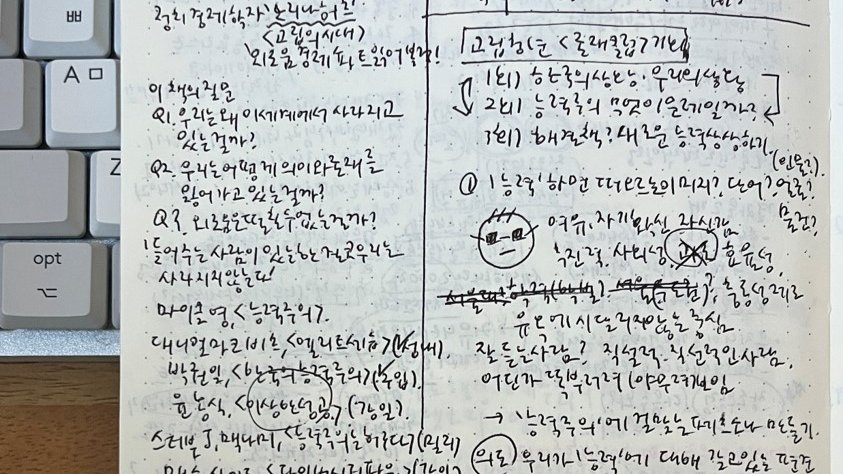 정치경제학자 노리나 허츠
<고립의 시대>
'외로움 경제' 파트 읽어보기!
이 책의 질문
Q1. 우리는 왜 이 세계에서 사라지고
있는 걸까?
Q2. 우리는 어떻게 의미와 노래를
잃어가고 있는 걸까?
Q3. 외로움은 떨칠 수 없는 걸까?
들어주는 사람이 있는 한 결코 우리는
사라지지 않는다!
마이클 영, <능력주의>.
대니얼 마코비츠, <엘리트 세습>
박권일, <한국의 능력주의>
윤 <이상한 성공> (강일).
스티븐 J. 맥나미, <능력주의는 허구다>
고립청년 <노래클럽> 기획
1회) 한국의 상황·우리의 상황
2회) 능력주의 무엇이 문제일까?
3회) 해결책? 새로운 능력 상상하기.
(인물?)
① '능력' 하면 떠오르는 이미지? 단어? 얼굴?
물건?
여유, 자기확신, 자신감
추진력, 사회성, 효율성,
유모에 시달리지 않는 중심
잘 듣는 사람? 직설적·직선적인 사람,
어딘가 딱 부러져
→ '능력주의'에 걸맞는 페르소나 만들기.
의도) 우리가 '능력'에 대해 갖고 있는 편견
ㅃ
A ㅁ
Z
opt
⌥